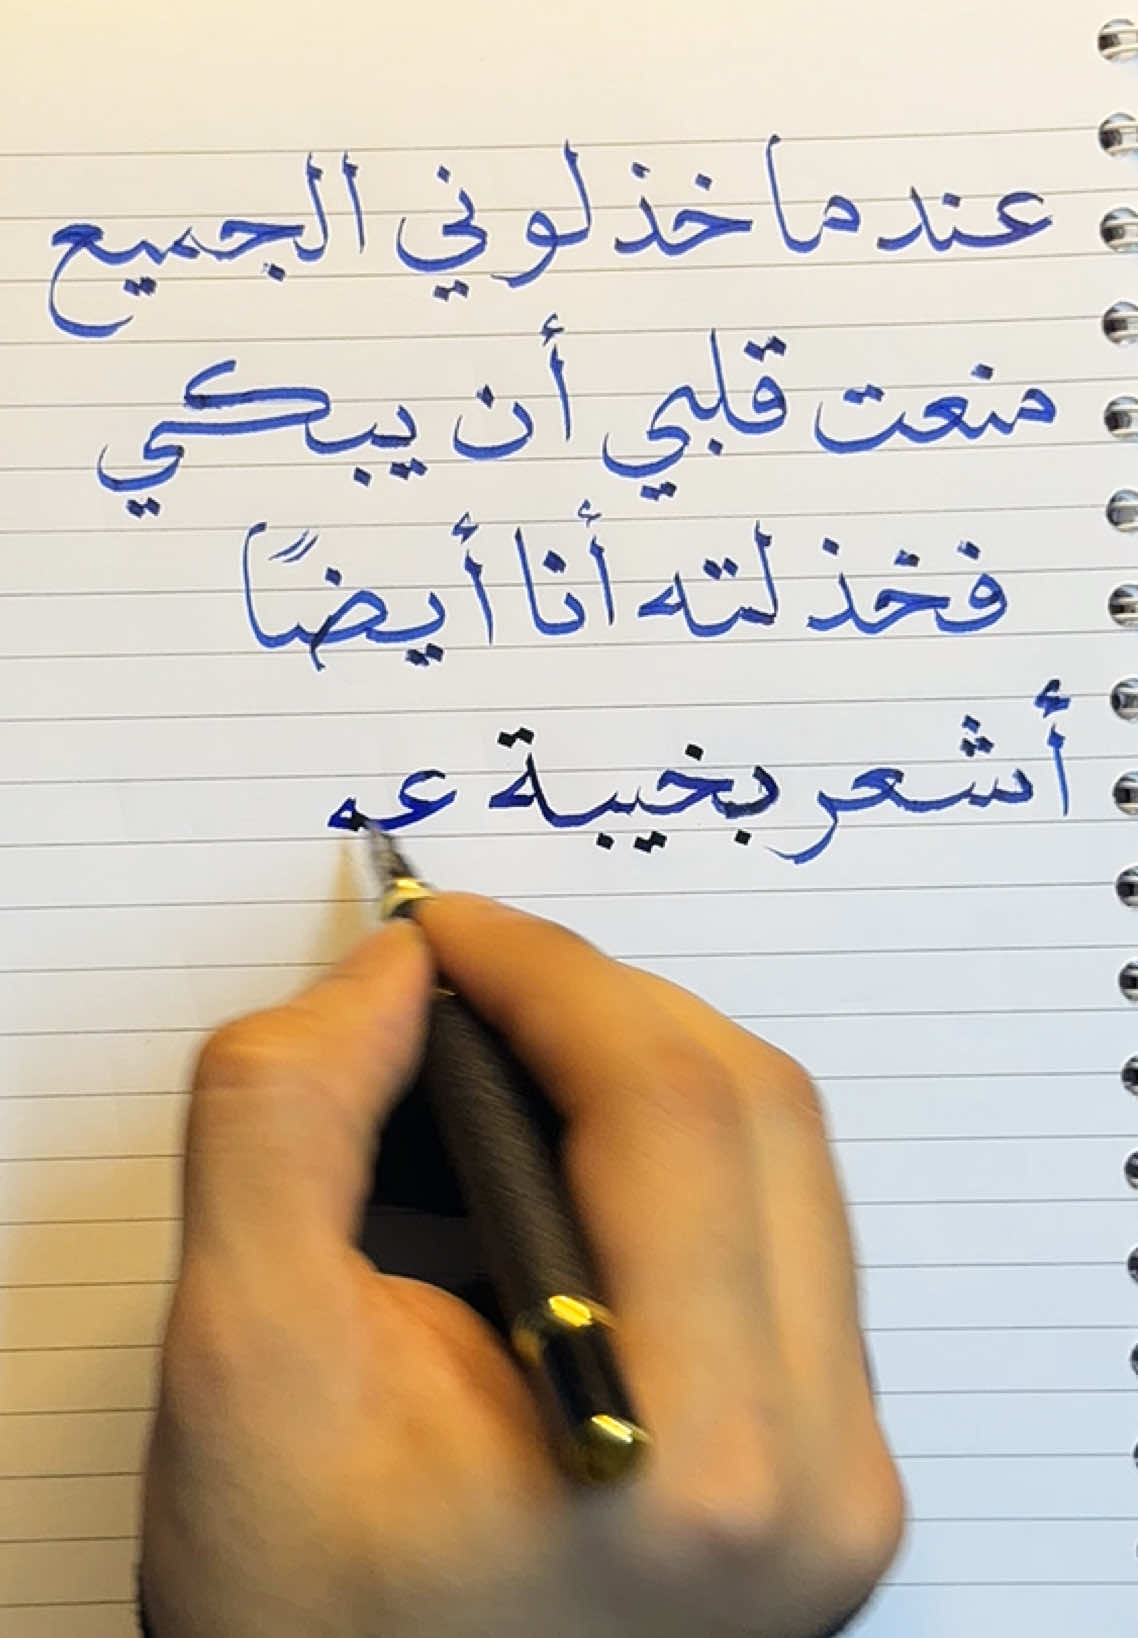 عندما خذلوني الجميع
منعت قلبي أن يبكي
فخذلته أنا أيضًا
أشعر بخيبة